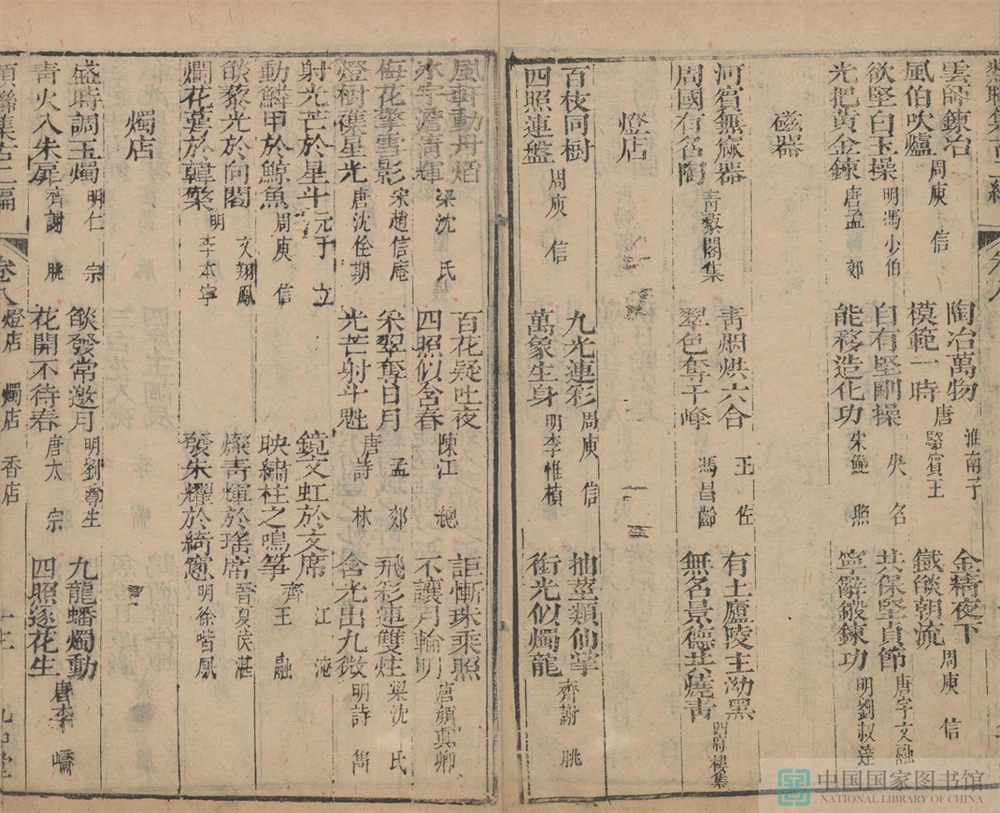 雲師鍊冶 陶冶萬物 淮南子 金精夜下
風伯吹爐 周庾信 模範一時 唐駱賓王 鐵燄朝流 周庾信
欲堅白玉操 明馮少伯 自有堅剛操 失名 共保堅貞節 唐宇文融
光把黃金鍊 唐孟郊 能移造化功 宋鮑照 寧辭鍛鍊功 明劉叔達
磁器
河賓無窳器 青烟烘六合 王佐 有土廬陵主泑黑
周國有名陶 青藜閣集 翠色奪千峰 馮昌齡 無名景德共燒青 四府樓集
燈店
百枝同樹 九光連彩 周庾信 抽莖類仙掌
四照連盤 周庾信 萬象生身 明李惟楨 銜光似燭龍 齊謝朓
風軒動丹焰 梁沈氏 百花疑吐夜 詎慚珠乘照
冰宇澹清輝 四照似含春 陳江總 不讓月輪明 唐顏真卿
梅花擎雪影 宋趙信庵 采翠奪日月 唐孟郊 飛彩連雙炷 梁沈氏
燈樹礙星光 唐沈佺期 光芒射斗魁 詩林 含光出九微 明詩雋
射光芒於星斗 元于立 鏡文虹於文席 江淹
動鱗甲於鯨魚 周庾信 映繡柱之鳴箏 齊王融
燄藜光於向閣 文翔鳳 燦青輝於瑤席 晉夏侯湛
爛花蕚於韓檠 明李本寧 發朱耀於綺窻 明徐喈鳳
燭店
盛時調玉燭 明仁宗 燄發常邀月 明劉生 九龍蟠燭動
青火入朱扉 齊謝朓 花開不待春 唐太宗 四照逐花生 唐李嶠
聯集古二編 卷八 燈店 燭店 香店
中国国家图书馆
NATIONAL LIBRARY OF CHINA